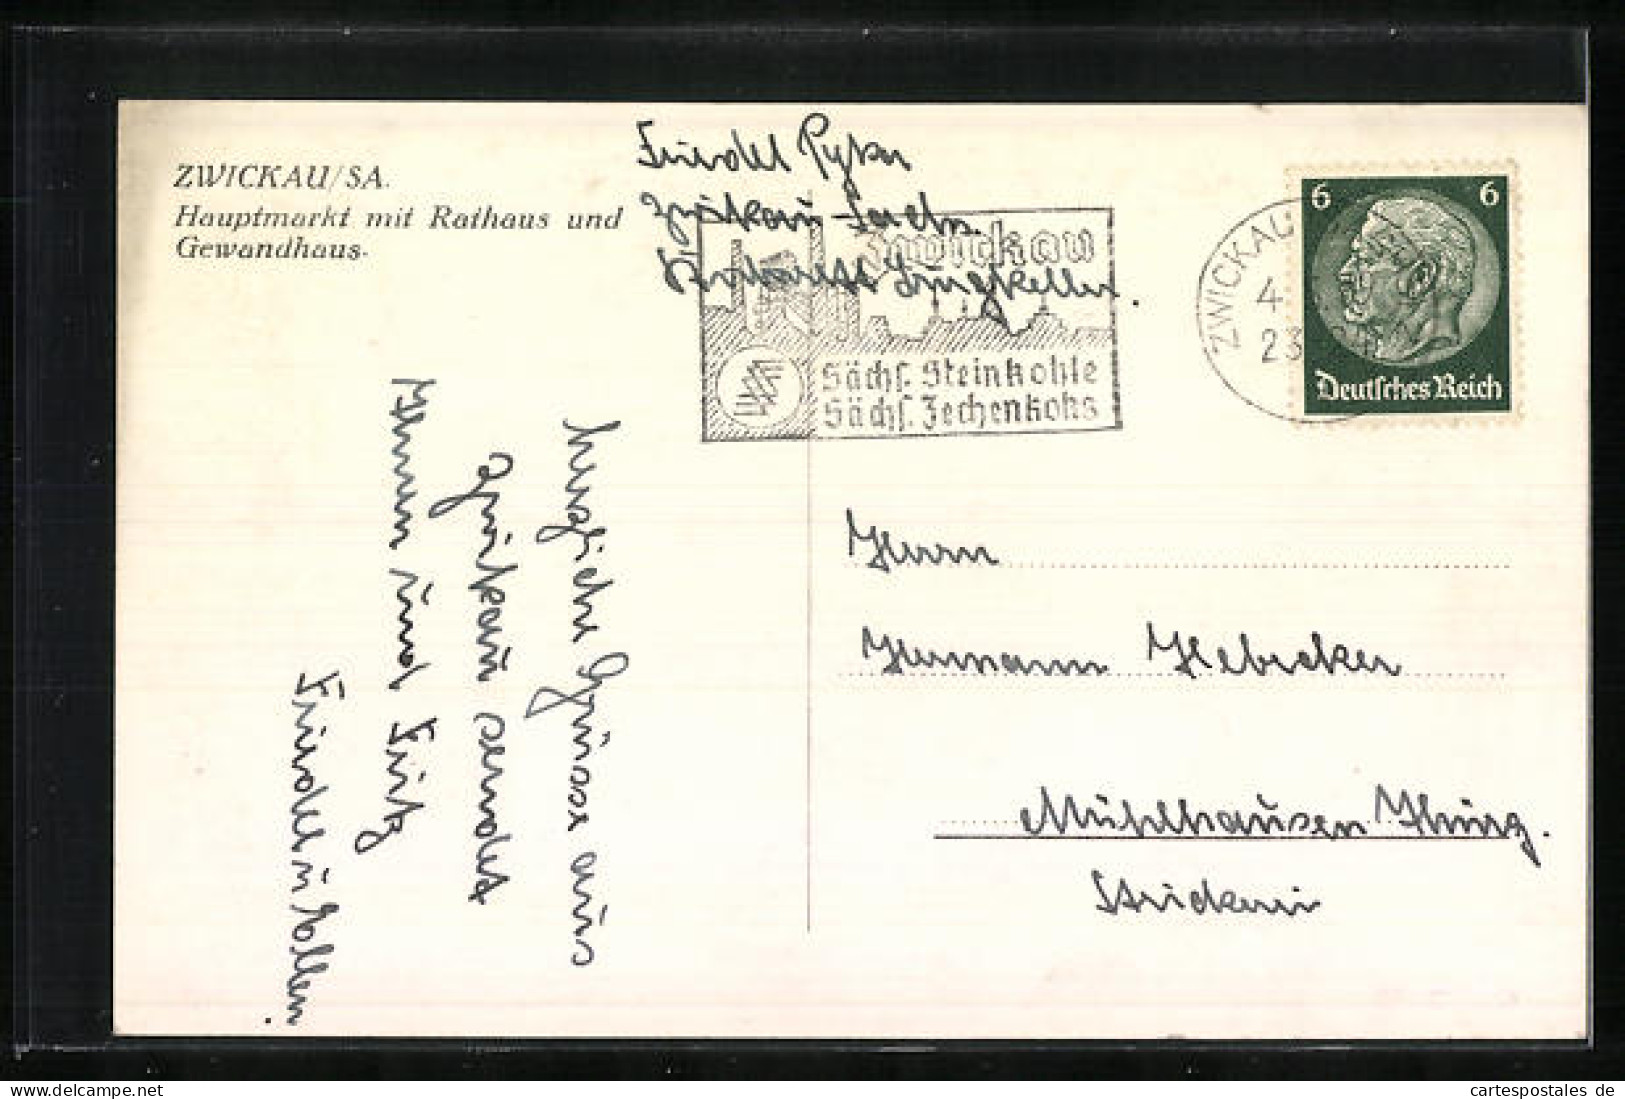 ZWICKAU/SA.
Hauptmarkt mit Rathaus und
Gewandhaus.
Friedel
Zwickau-Sachs.
Zwickau
Sächs. Steinkohle
Sächs. Zechenkoks
ZWICKAU
4.
23
6 6
Deutsches Reich
Herzliche Grüsse aus
Zwickau sendet
Ihnen und Fritz
Friedel
Herrn
Hermann
Mühlhausen Thürg.
Strickerei
cartespostales de